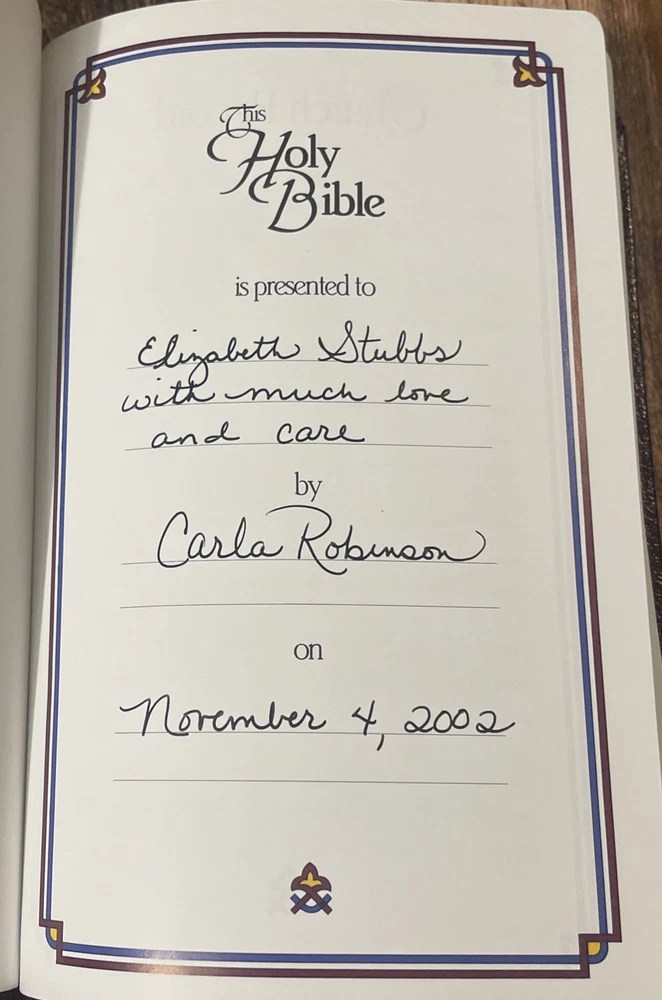 This
Holy
Bible
is presented to
Elizabeth Stubbs
with much love
and care
by
Carla Robinson
on
November 4, 2002